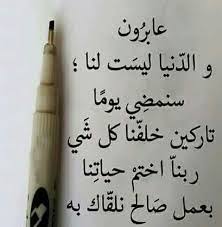 عابرُون
و الدّنيا ليسَت لنا ؛
سنمضِي يومًا
تاركين خلفّنا كل شَي
ربناّ اختمْ حياتِنا
بعمل صَالح نلقّاك به